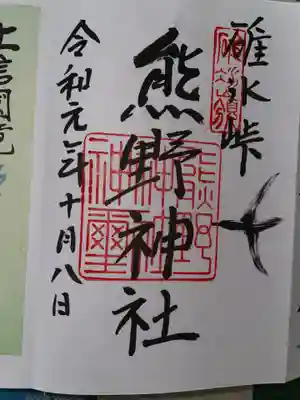 碓氷峠
熊野神社
令和元年十月八日
上信國境